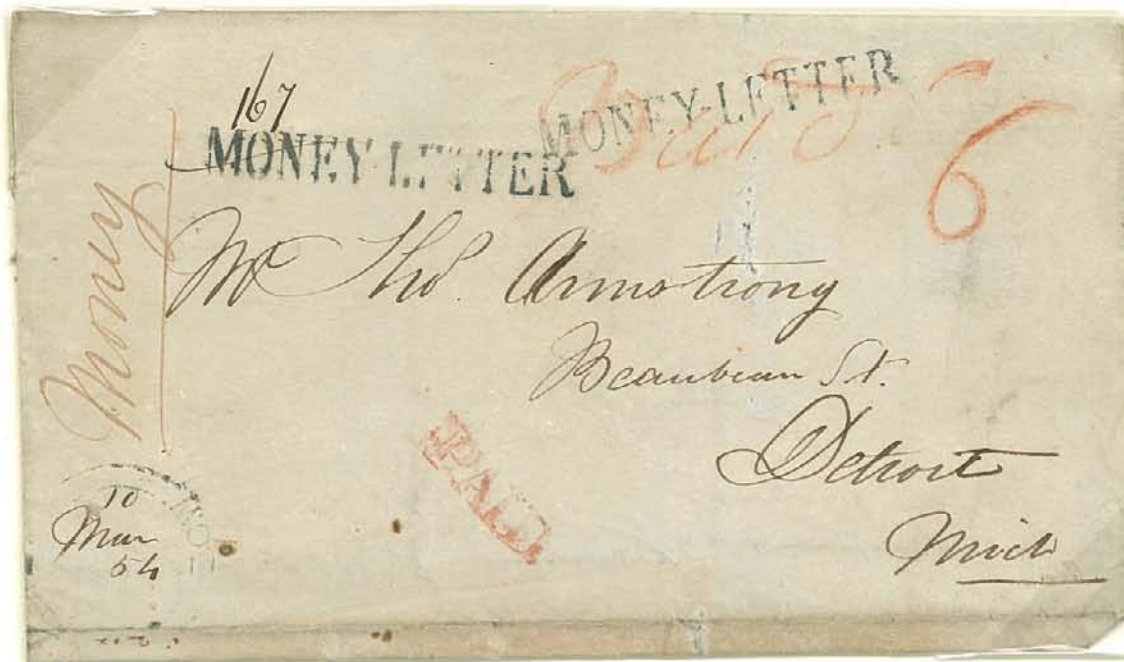 167
MONEY-LETTER
MONEY-LETTER
6
Money
Mr Thos. Armstrong
Beaubean St.
Detroit
Mich
PAID
10
Mar
54